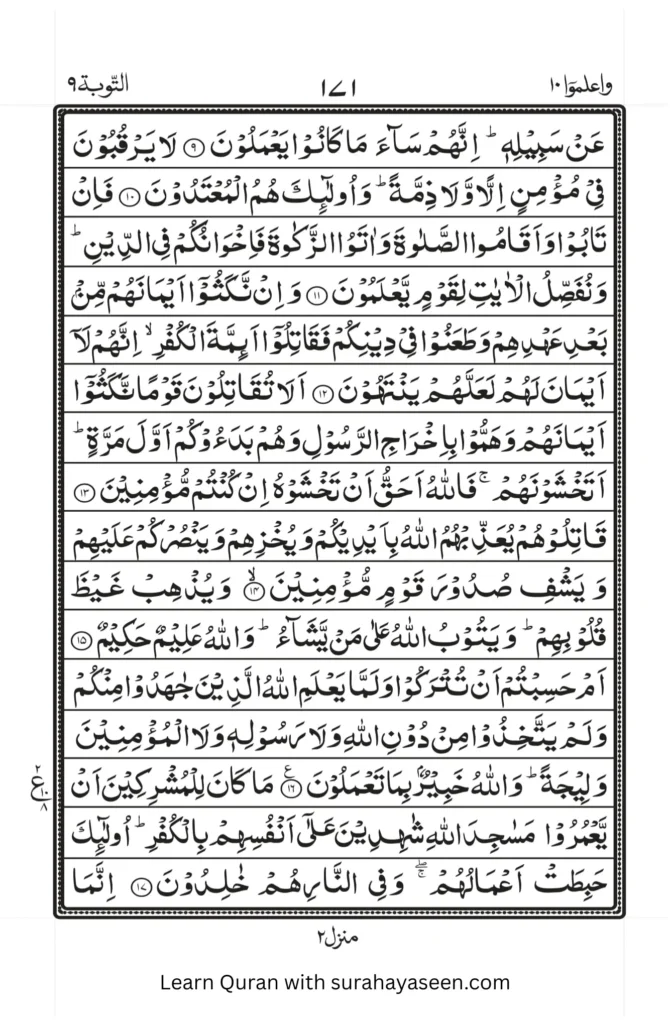 التّوبة ۹ ۱۷۱ واعلموٓا ۱۰
عَنْ سَبِيْلِهٖ ؕ اِنَّهُمْ سَآءَ مَا كَانُوْا يَعْمَلُوْنَ ۹ لَا يَرْقُبُوْنَ
فِيْ مُؤْمِنٍ اِلًّا وَّلَا ذِمَّةً ؕ وَاُولٰٓئِكَ هُمُ الْمُعْتَدُوْنَ ۱۰ فَاِنْ
تَابُوْا وَاَقَامُوا الصَّلٰوةَ وَاٰتَوُا الزَّكٰوةَ فَاِخْوَانُكُمْ فِي الدِّيْنِ ؕ
وَنُفَصِّلُ الْاٰيٰتِ لِقَوْمٍ يَّعْلَمُوْنَ ۱۱ وَاِنْ نَّكَثُوْٓا اَيْمَانَهُمْ مِّنْۢ
بَعْدِ عَهْدِهِمْ وَطَعَنُوْا فِيْ دِيْنِكُمْ فَقَاتِلُوْٓا اَئِمَّةَ الْكُفْرِ ۙ اِنَّهُمْ لَآ
اَيْمَانَ لَهُمْ لَعَلَّهُمْ يَنْتَهُوْنَ ۱۲ اَلَا تُقَاتِلُوْنَ قَوْمًا نَّكَثُوْٓا
اَيْمَانَهُمْ وَهَمُّوْا بِاِخْرَاجِ الرَّسُوْلِ وَهُمْ بَدَءُوْكُمْ اَوَّلَ مَرَّةٍ ؕ
اَتَخْشَوْنَهُمْ ۚ فَاللّٰهُ اَحَقُّ اَنْ تَخْشَوْهُ اِنْ كُنْتُمْ مُّؤْمِنِيْنَ ۱۳
قَاتِلُوْهُمْ يُعَذِّبْهُمُ اللّٰهُ بِاَيْدِيْكُمْ وَيُخْزِهِمْ وَيَنْصُرْكُمْ عَلَيْهِمْ
وَيَشْفِ صُدُوْرَ قَوْمٍ مُّؤْمِنِيْنَ ۙ ۱۴ وَيُذْهِبْ غَيْظَ
قُلُوْبِهِمْ ؕ وَيَتُوْبُ اللّٰهُ عَلٰى مَنْ يَّشَآءُ ؕ وَاللّٰهُ عَلِيْمٌ حَكِيْمٌ ۱۵
اَمْ حَسِبْتُمْ اَنْ تُتْرَكُوْا وَلَمَّا يَعْلَمِ اللّٰهُ الَّذِيْنَ جٰهَدُوْا مِنْكُمْ
وَلَمْ يَتَّخِذُوْا مِنْ دُوْنِ اللّٰهِ وَلَا رَسُوْلِهٖ وَلَا الْمُؤْمِنِيْنَ
وَلِيْجَةً ؕ وَاللّٰهُ خَبِيْرٌۢ بِمَا تَعْمَلُوْنَ ۱۶ ع مَا كَانَ لِلْمُشْرِكِيْنَ اَنْ
۲ ع ۱۰ ۸
يَّعْمُرُوْا مَسٰجِدَ اللّٰهِ شٰهِدِيْنَ عَلٰٓى اَنْفُسِهِمْ بِالْكُفْرِ ؕ اُولٰٓئِكَ
حَبِطَتْ اَعْمَالُهُمْ ۖۚ وَفِي النَّارِ هُمْ خٰلِدُوْنَ ۱۷ اِنَّمَا
منزل ۲
Learn Quran with surahayaseen.com